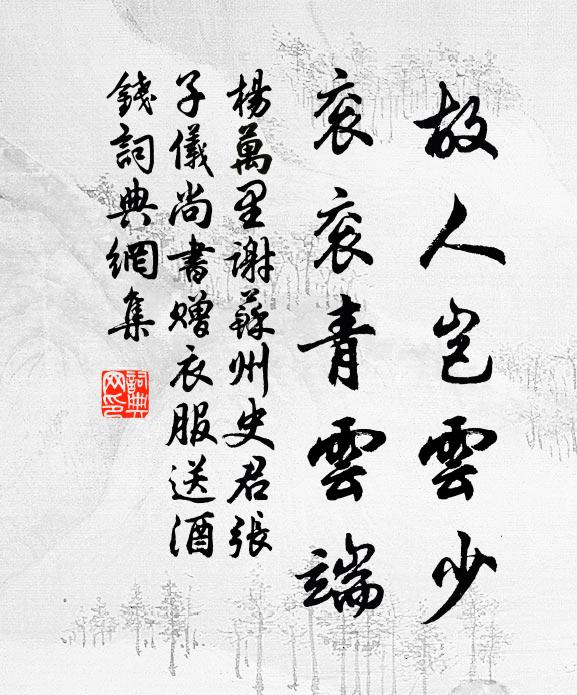 故人豈雲少
袞袞青雲端
楊萬里謝蘇州史君張
子儀尚書贈衣服送酒
錢詞典網集
詞典網印